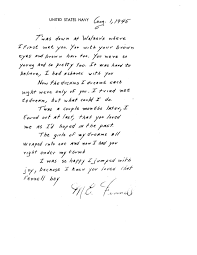 UNITED STATES NAVY Aug. 1, 1945
T'was down at Watson's where
I first met you. You with your brown
eyes and brown hair too. You were so
young and so pretty too. It was hard to
believe, I had a chance with you
Now the dreams I dreams each
night were only of you. I tried not
to dream, but what could I do.
Twas a couple months later, I
found out at last, that you loved
me as I'd hoped in the past.
The girls of my dreams all
wraped into one and now I had you
right under my thumb
I was so happy I jumped with
joy, because I knew you loved that
Fennell boy.